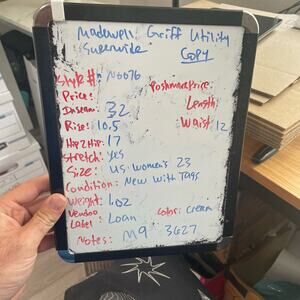 Madewell Griff Utility
Superwide Copy
Style # N0076
Price: Poshmark Price:
Inseam: 32 Length:
Rise: 10.5 Waist 12
Hip 2 Hip: 17
Stretch: yes
Size: US Women's 23
Condition: New With Tags
Weight: 1oz
Vendoo
Label: Loan Color: Cream
Notes: M9 3627